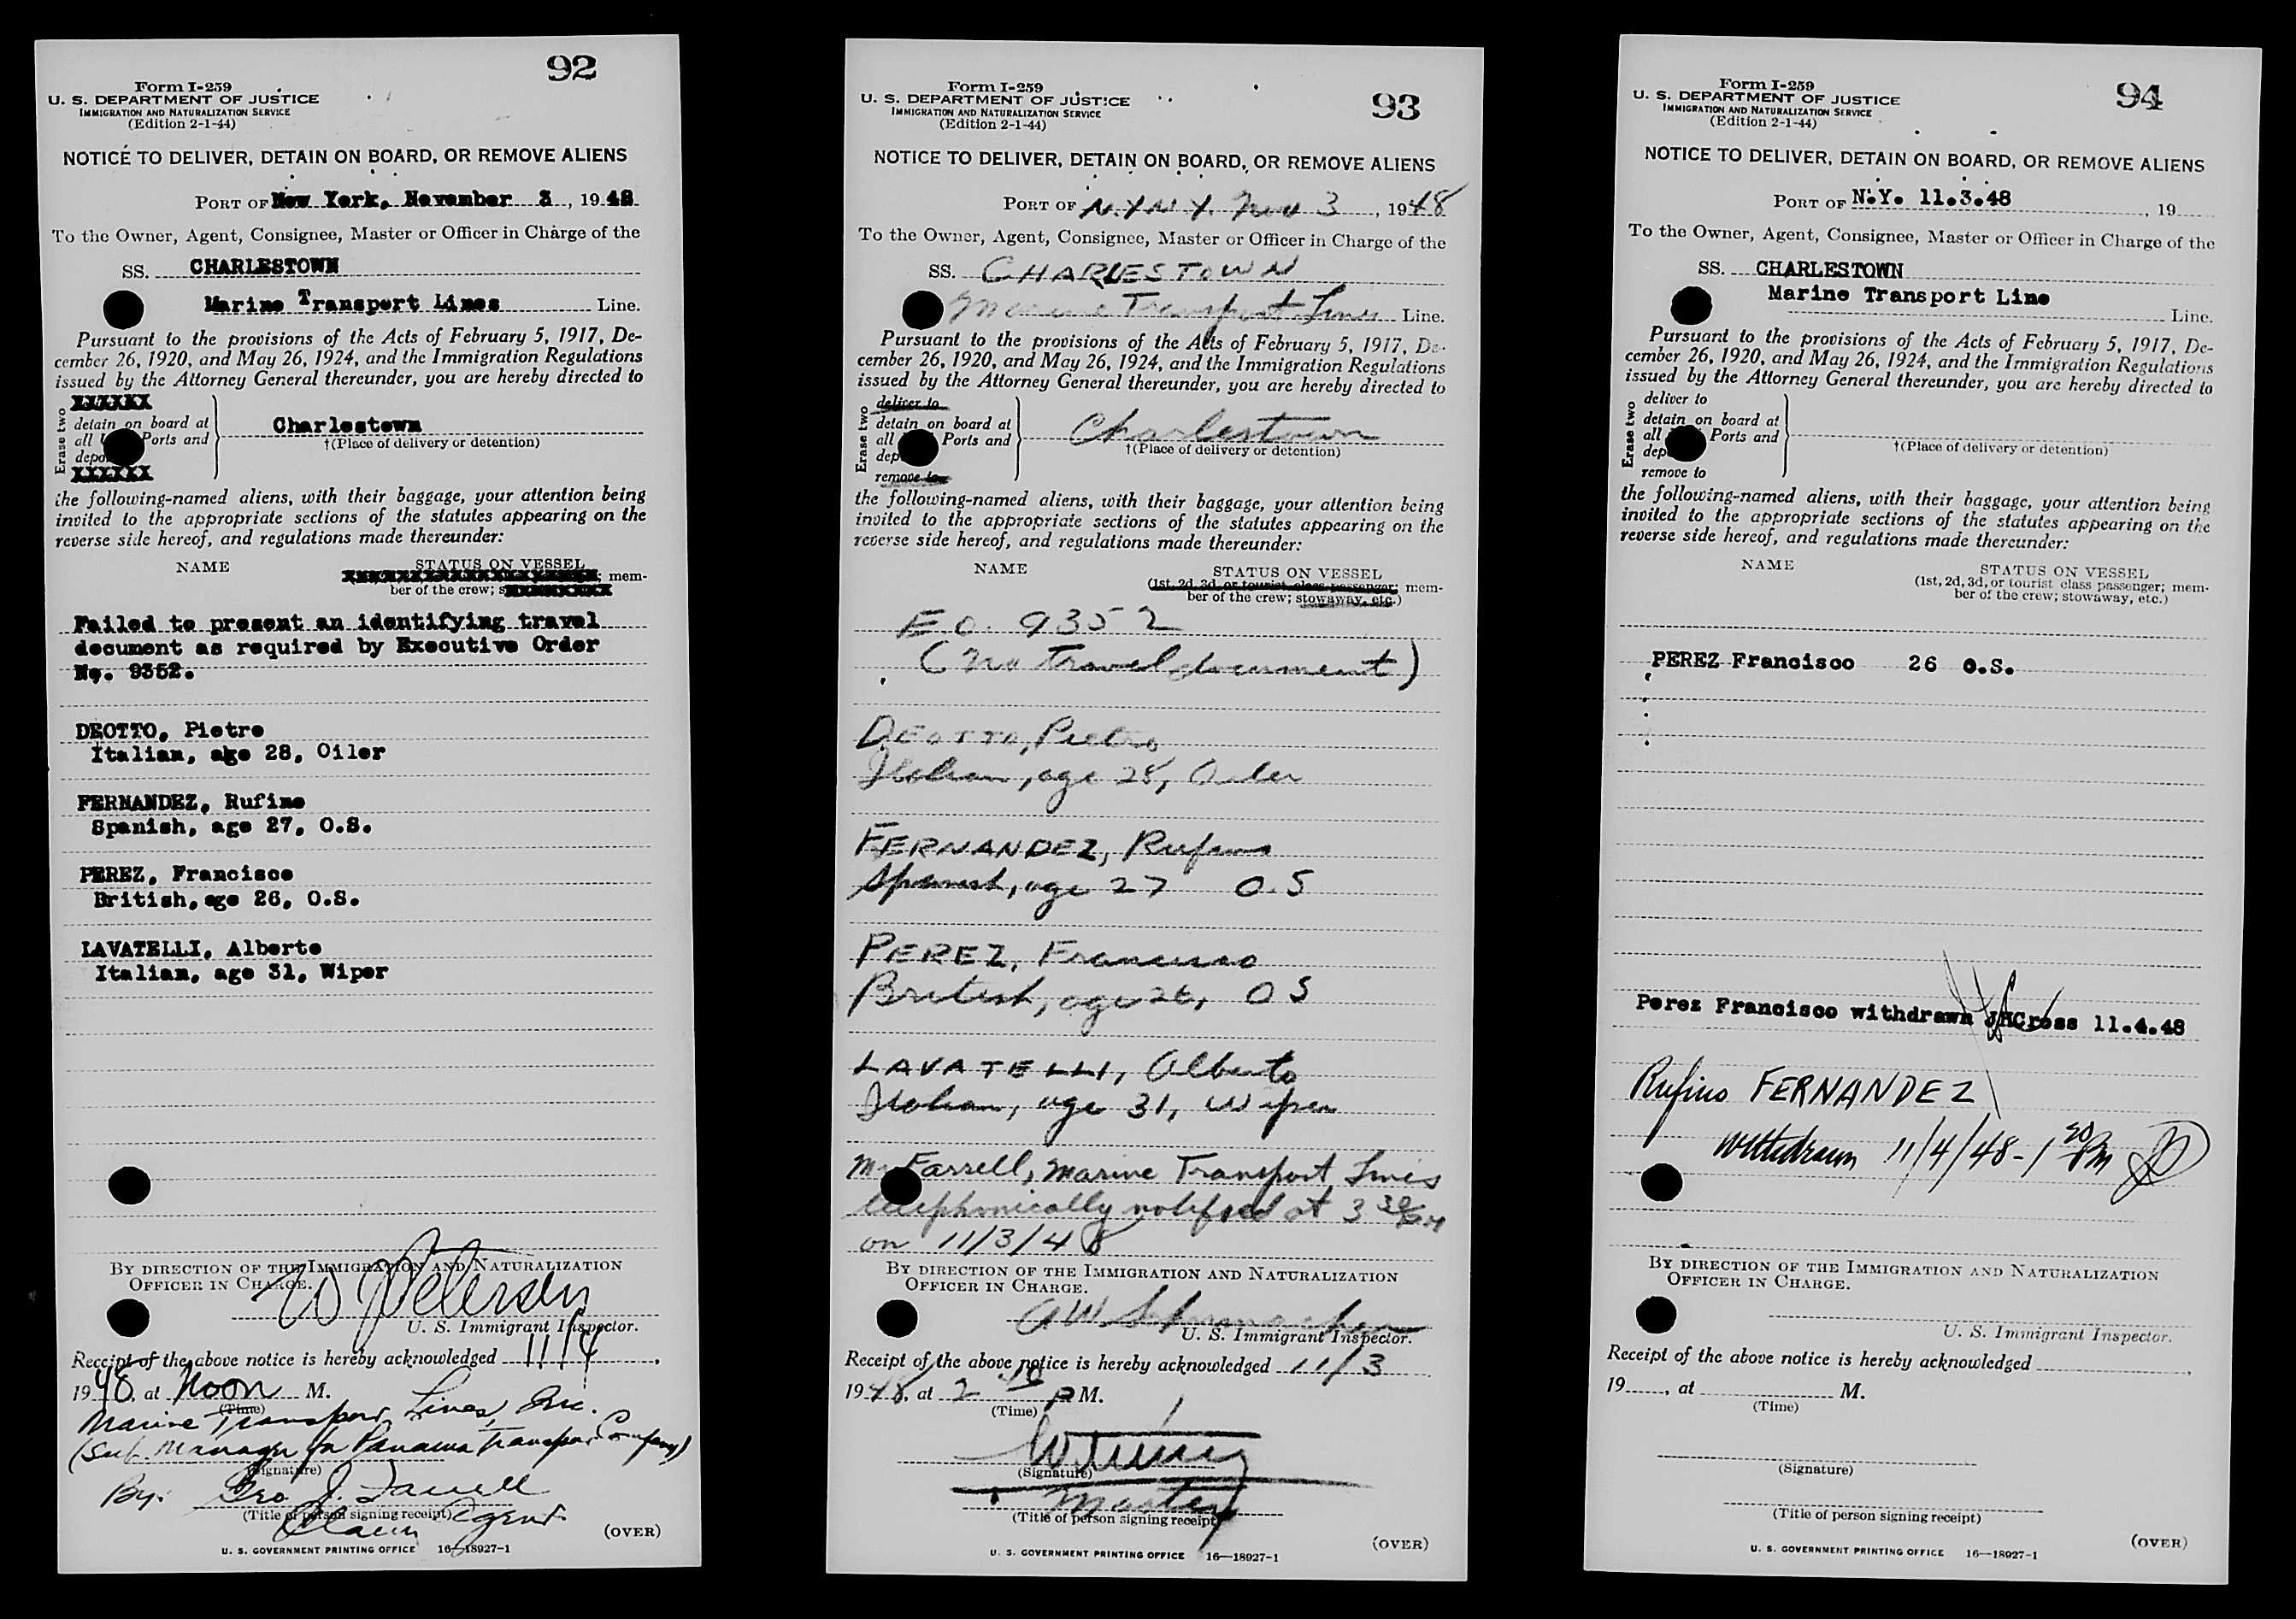 92
Form I-259
U. S. DEPARTMENT OF JUSTICE
IMMIGRATION AND NATURALIZATION SERVICE
(Edition 2-1-44)
NOTICE TO DELIVER, DETAIN ON BOARD, OR REMOVE ALIENS
PORT OF New York, November 3, 1948
To the Owner, Agent, Consignee, Master or Officer in Charge of the
SS. CHARLESTOWN
Marine Transport Lines Line.
Pursuant to the provisions of the Acts of February 5, 1917, De-
cember 26, 1920, and May 26, 1924, and the Immigration Regulations
issued by the Attorney General thereunder, you are hereby directed to
Erase two
XXXXXX
detain on board at
all Ports and
depo
XXXXXX
Charlestown
†(Place of delivery or detention)
the following-named aliens, with their baggage, your attention being
invited to the appropriate sections of the statutes appearing on the
reverse side hereof, and regulations made thereunder:
NAME STATUS ON VESSEL
; mem-
ber of the crew;
Failed to present an identifying travel
document as required by Executive Order
No. 9352.
DEOTTO, Pietro
Italian, age 28, Oiler
FERNANDEZ, Rufino
Spanish, age 27, O.S.
PEREZ, Francisco
British, age 26, O.S.
LAVATELLI, Alberto
Italian, age 31, Wiper
BY DIRECTION OF THE IMMIGRATION AND NATURALIZATION
OFFICER IN CHARGE.
U. S. Immigrant Inspector.
Receipt of the above notice is hereby acknowledged 11/4,
1948, at Noon M.
(Time)
Marine Transport Lines, Inc.
(Sub. Manager for Panama Transport Company)
(Signature)
By: Geo. J. Farrell
(Title of person signing receipt)
Claim Agent
(OVER)
U. S. GOVERNMENT PRINTING OFFICE 16—18927-1
93
Form I-259
U. S. DEPARTMENT OF JUSTICE
IMMIGRATION AND NATURALIZATION SERVICE
(Edition 2-1-44)
NOTICE TO DELIVER, DETAIN ON BOARD, OR REMOVE ALIENS
PORT OF N.Y N.Y. Nov 3, 1948
To the Owner, Agent, Consignee, Master or Officer in Charge of the
SS. CHARLESTOWN
Marine Transport Lines Line.
Pursuant to the provisions of the Acts of February 5, 1917, De-
cember 26, 1920, and May 26, 1924, and the Immigration Regulations
issued by the Attorney General thereunder, you are hereby directed to
Erase two
deliver to
detain on board at
all Ports and
dep
remove to
Charlestown
†(Place of delivery or detention)
the following-named aliens, with their baggage, your attention being
invited to the appropriate sections of the statutes appearing on the
reverse side hereof, and regulations made thereunder:
NAME STATUS ON VESSEL
(1st, 2d, 3d, or tourist class passenger; mem-
ber of the crew; stowaway, etc.)
E.O. 9352
(No travel document)
DEOTTO, Pietro
Italian, age 28, Oiler
FERNANDEZ, Rufino
Spanish, age 27 O.S
PEREZ, Francisco
British, age 26, OS
LAVATELLI, Alberto
Italian, age 31, Wiper
Mr Farrell, Marine Transport Lines
telephonically notified at 3 30 PM
on 11/3/48
BY DIRECTION OF THE IMMIGRATION AND NATURALIZATION
OFFICER IN CHARGE.
U. S. Immigrant Inspector.
Receipt of the above notice is hereby acknowledged 11/3
1948, at 2 10 P M.
(Time)
(Signature)
Master
(Title of person signing receipt)
(OVER)
U. S. GOVERNMENT PRINTING OFFICE 16—18927-1
94
Form I-259
U. S. DEPARTMENT OF JUSTICE
IMMIGRATION AND NATURALIZATION SERVICE
(Edition 2-1-44)
NOTICE TO DELIVER, DETAIN ON BOARD, OR REMOVE ALIENS
PORT OF N.Y. 11.3.48, 19
To the Owner, Agent, Consignee, Master or Officer in Charge of the
SS. CHARLESTOWN
Marine Transport Line
Line.
Pursuant to the provisions of the Acts of February 5, 1917, De-
cember 26, 1920, and May 26, 1924, and the Immigration Regulations
issued by the Attorney General thereunder, you are hereby directed to
Erase two
deliver to
detain on board at
all Ports and
dep
remove to
†(Place of delivery or detention)
the following-named aliens, with their baggage, your attention being
invited to the appropriate sections of the statutes appearing on the
reverse side hereof, and regulations made thereunder:
NAME STATUS ON VESSEL
(1st, 2d, 3d, or tourist class passenger; mem-
ber of the crew; stowaway, etc.)
PEREZ Francisco 26 O.S.
Perez Francisco withdrawn JHCross 11.4.48
Rufino FERNANDEZ
Withdrawn 11/4/48 - 1 20 PM
BY DIRECTION OF THE IMMIGRATION AND NATURALIZATION
OFFICER IN CHARGE.
U. S. Immigrant Inspector.
Receipt of the above notice is hereby acknowledged
19, at M.
(Time)
(Signature)
(Title of person signing receipt)
(OVER)
U. S. GOVERNMENT PRINTING OFFICE 16—18927-1